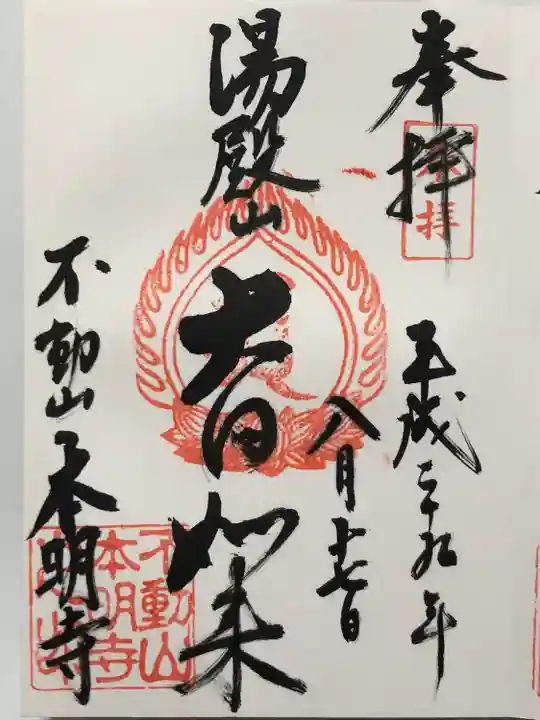 奉拝
平成二十九年
八月十七日
湯殿山
大日如来
不動山本明寺
不動山
本明寺